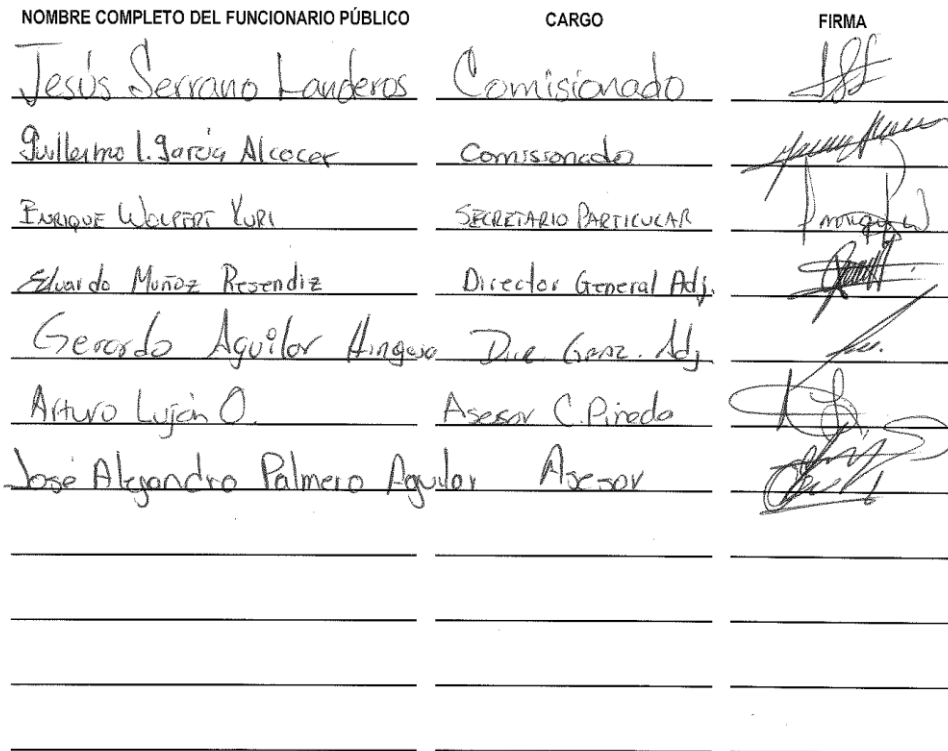 NOMBRE COMPLETO DEL FUNCIONARIO PÚBLICO CARGO FIRMA
Jesús Serrano Landeros Comisionado
Guillermo I. García Alcocer Comissionado
ENRIQUE WOLPERT KURI SECRETARIO PARTICULAR
Eduardo Muñoz Resendiz Director General Adj.
Gerardo Aguilar Adj
Arturo Luján O. Asesor C. Pineda
José Alejandro Palmero Aguilar Asesor